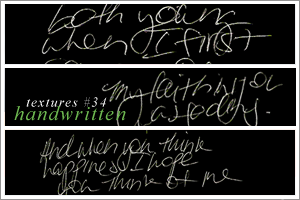 both young
when I first
my faith in you
textures #34
handwritten
And when you think
happiness I hope
you think of me